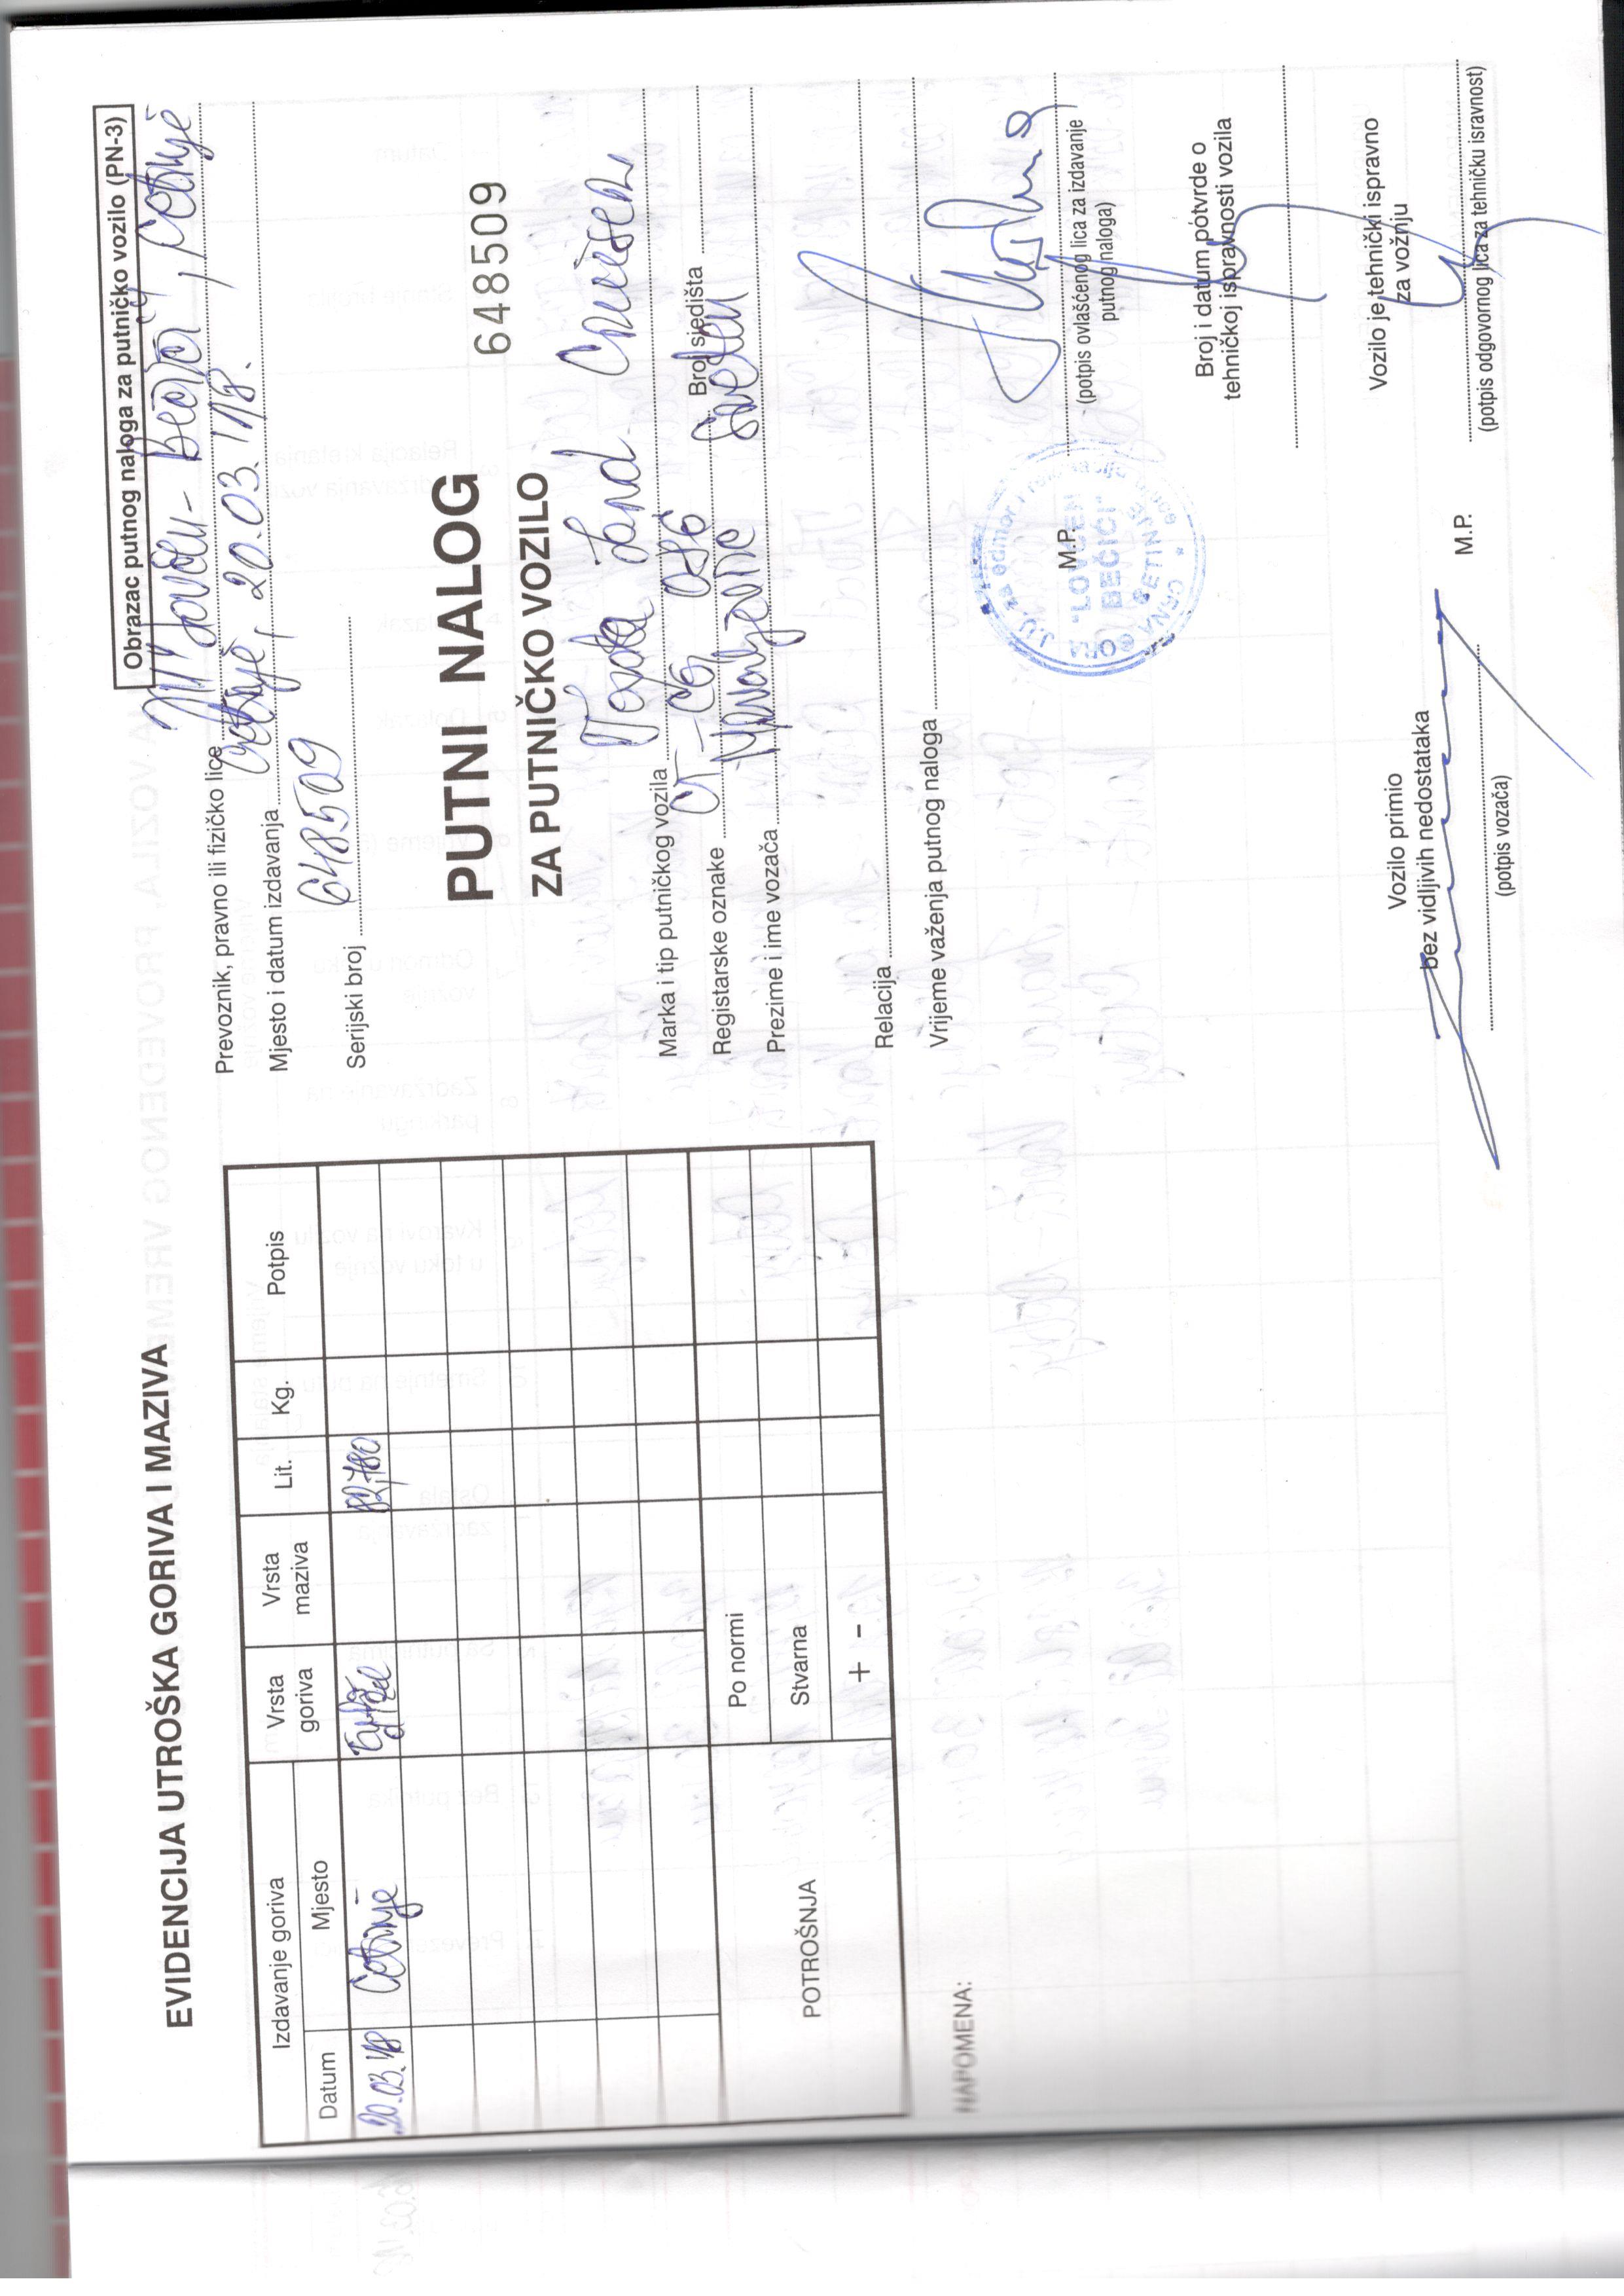 EVIDENCIJA UTROŠKA GORIVA I MAZIVA
Izdavanje goriva
Datum
Mjesto
Vrsta
goriva
Vrsta
maziva
Lit.
Kg.
Potpis
20.03.18 Cetinje
82,780
Po normi
Stvarna
+ -
POTROŠNJA
NAPOMENA:
Obrazac putnog naloga za putničko vozilo (PN-3)
Prevoznik, pravno ili fizičko lice "Lovćen - Bečići", Cetinje
Mjesto i datum izdavanja Cetinje, 20.03.'18.
Serijski broj 648509
PUTNI NALOG
648509
ZA PUTNIČKO VOZILO
Marka i tip putničkog vozila Toyota Land Cruiser
Registarske oznake CT-CG 086 Broj sjedišta
Prezime i ime vozača
Relacija
Vrijeme važenja putnog naloga
M.P.
(potpis ovlašćenog lica za izdavanje
putnog naloga)
JU za odmor i rekreaciju djece
"LOVĆEN
BEČIĆI"
CETINJE
CRNA GORA
Broj i datum potvrde o
tehničkoj ispravnosti vozila
Vozilo primio
bez vidljivih nedostataka
(potpis vozača)
Vozilo je tehnički ispravno
za vožnju
M.P.
(potpis odgovornog lica za tehničku isravnost)